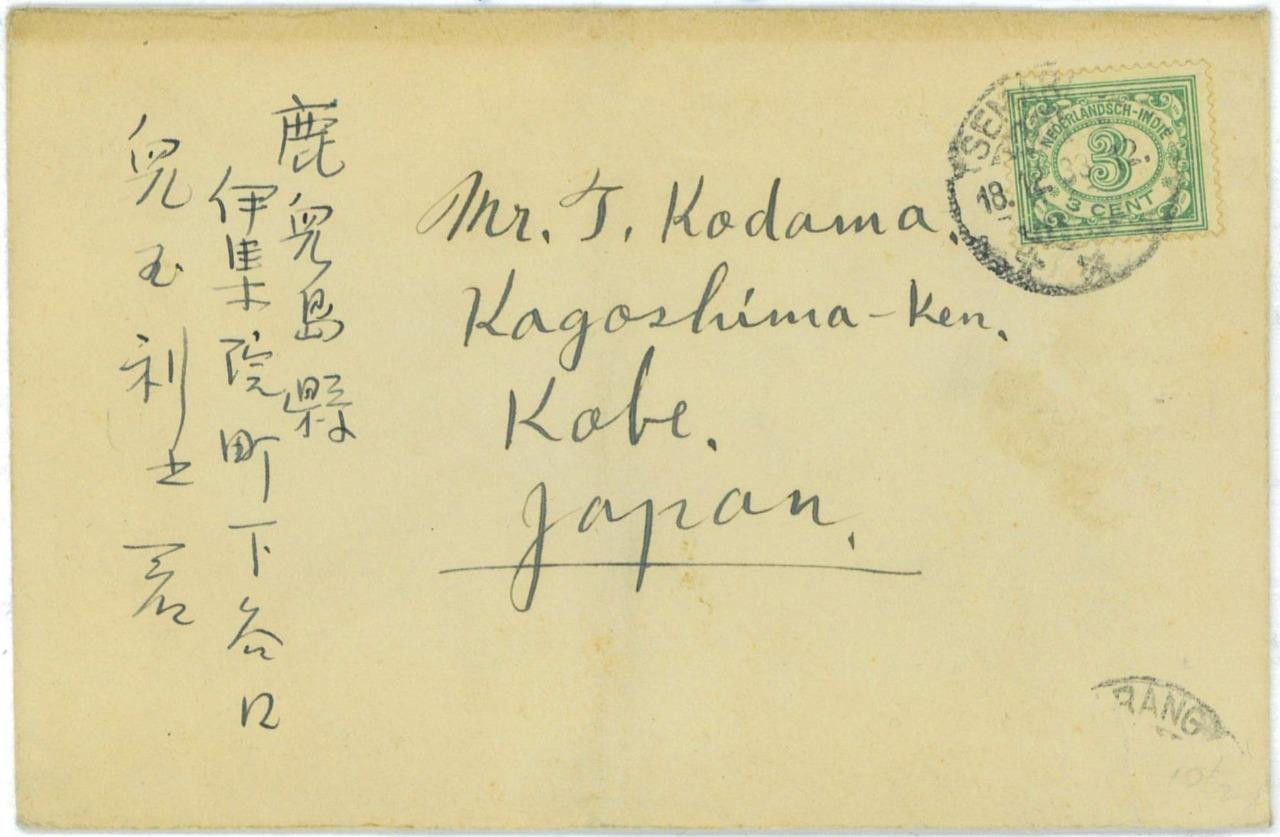 鹿児島縣
伊集院町下谷口
児玉利士君
Mr. T. Kodama.
Kagoshima-Ken.
Kobe.
Japan.
NEDERLANDSCH-INDIË
3
3 CENT
SEMAR
18.
RANG